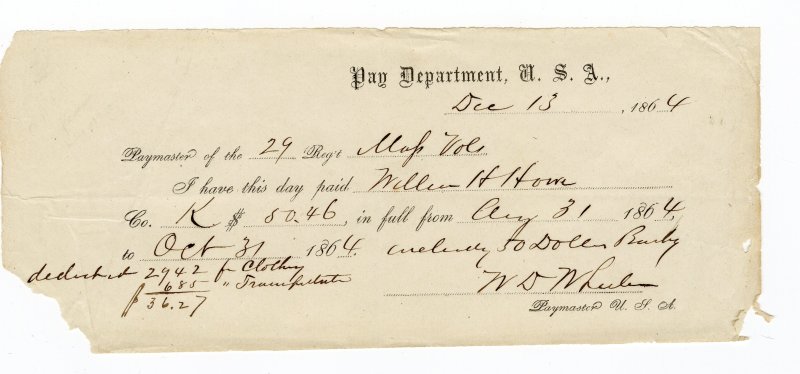 Pay Department, U. S. A.,
Dec 13, 1864
Paymaster of the 29 Reg't Mass Vols
I have this day paid William H Howe
Co. K $ 50.46, in full from Aug 31 1864,
to Oct 31 1864. including 50 Dollars Bounty
deducted 2942 for Clothing
685 " Transportation
$36.27
W D Wheeler
Paymaster U. S. A.